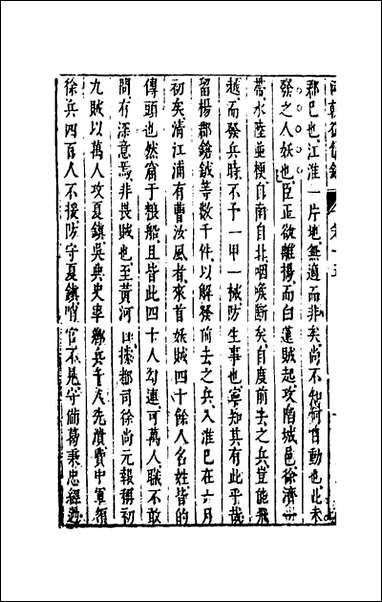 兩朝從信錄
郡已也江淮一片地無適而非矣尚不知何日動也此未
發之人妖也臣正欲離揚而白蓮賊起攻陷城邑徐濟一
帶水陸並梗自南自北咽喉斷矣自度前去之兵豈能飛
越而發兵時不予一甲一械防生事也寧知其有此乎哉
留楊郡鎗銃等數千件以解發前去之兵入淮已在六月
初矣清江浦有曹汝風者來首妖賊四十餘人名姓皆的
傳頭也然竄于粮船且皆此四十人勾連可萬人職不敢
問有深意焉非畏賊也至黃河口據都司徐尚元報稱初
九賊以萬人攻夏鎮吳典史率鄉兵千人先潰費中軍領
徐兵四百人不援防守夏鎮哨官不見守備葛秉忠經過